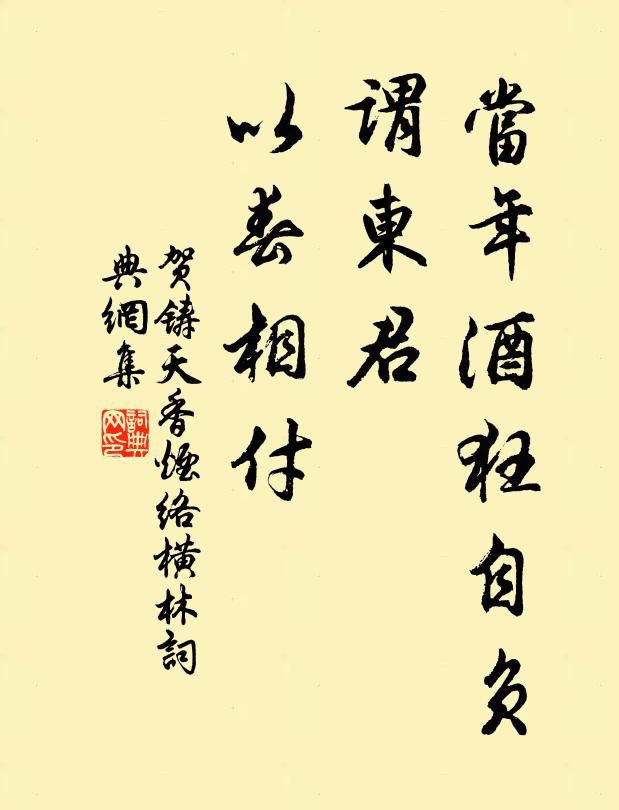 當年酒狂自負
謂東君
以春相付
賀鑄天香煙絡橫林詞
典網集
詞典網印